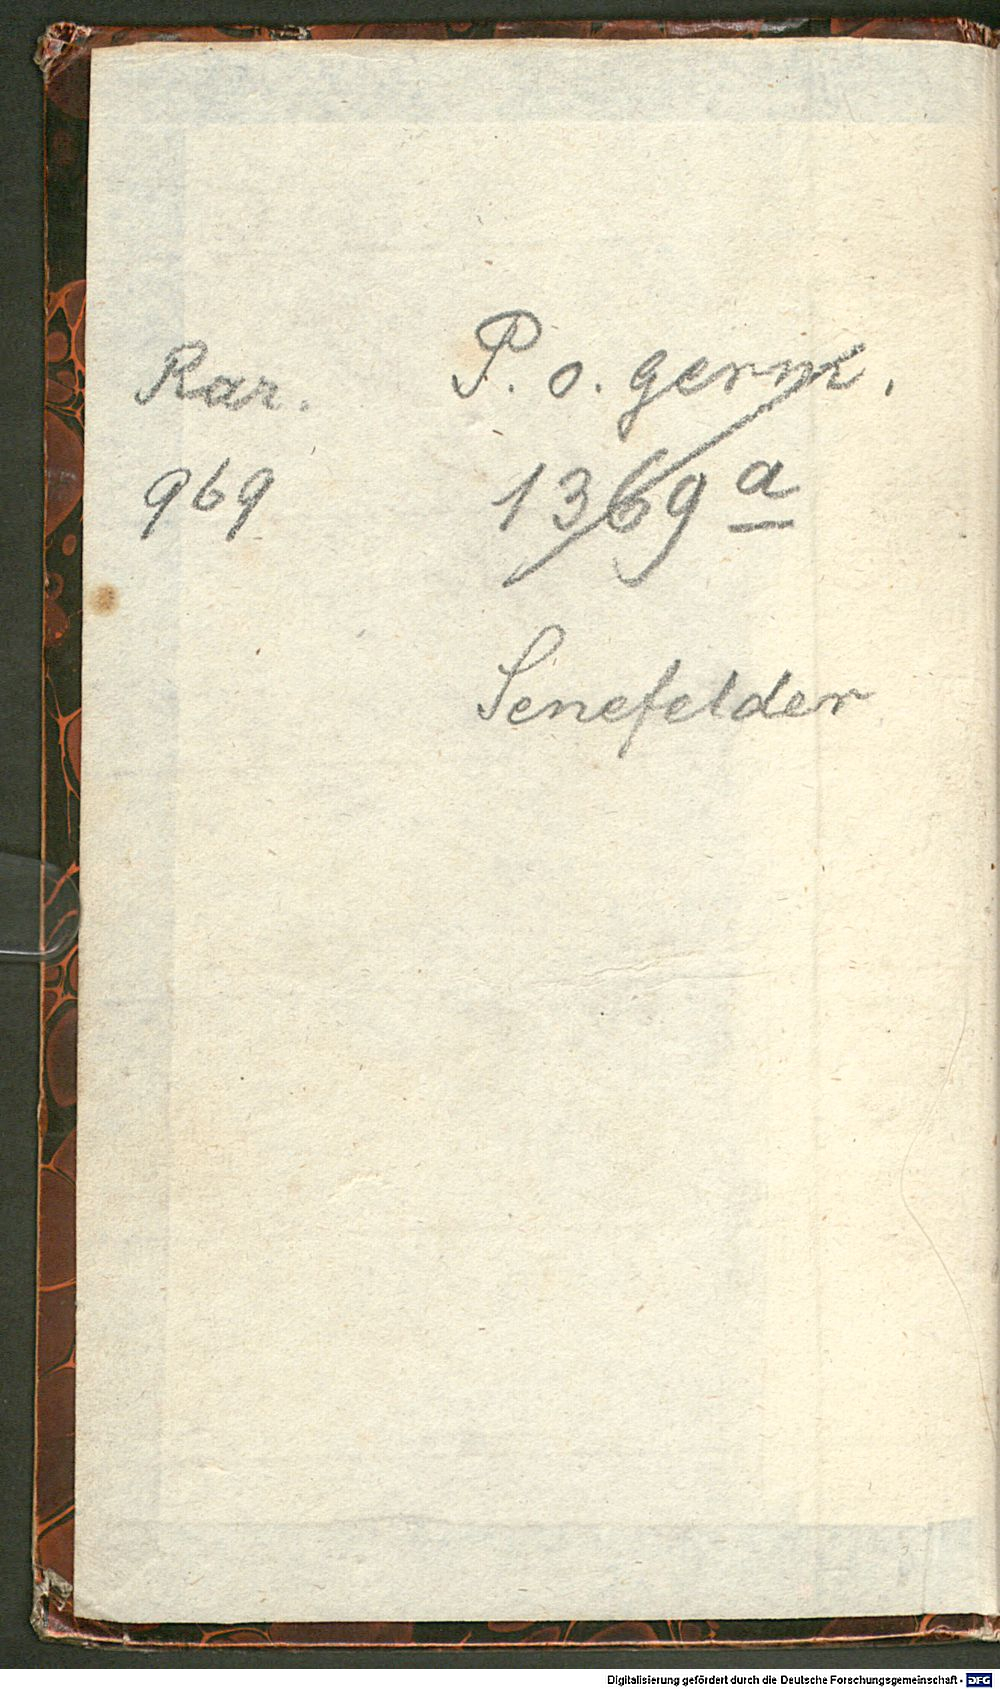 Rar.
969
P. o. germ.
1369 a
Senefelder
Digitalisierung gefördert durch die Deutsche Forschungsgemeinschaft - DFG